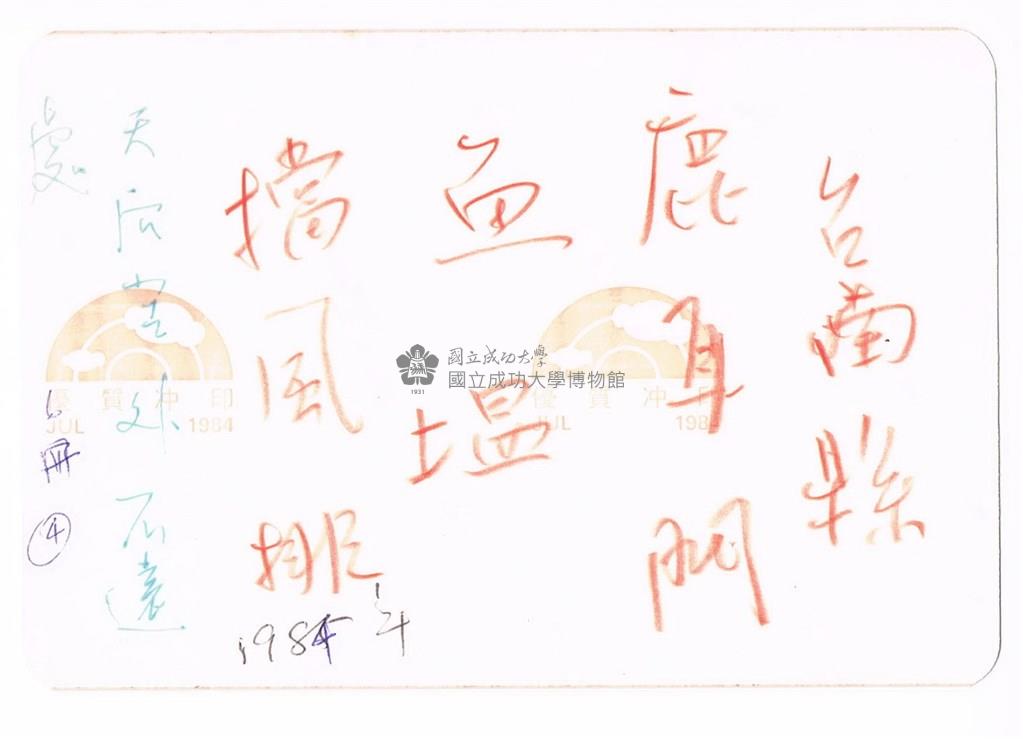 台南縣
鹿耳門
魚塭
擋風排
1984年
天后宮外不遠
處
6冊④
國立成功大學
國立成功大學博物館
1931
優質冲印
JUL 1984
優質冲印
JUL 1984